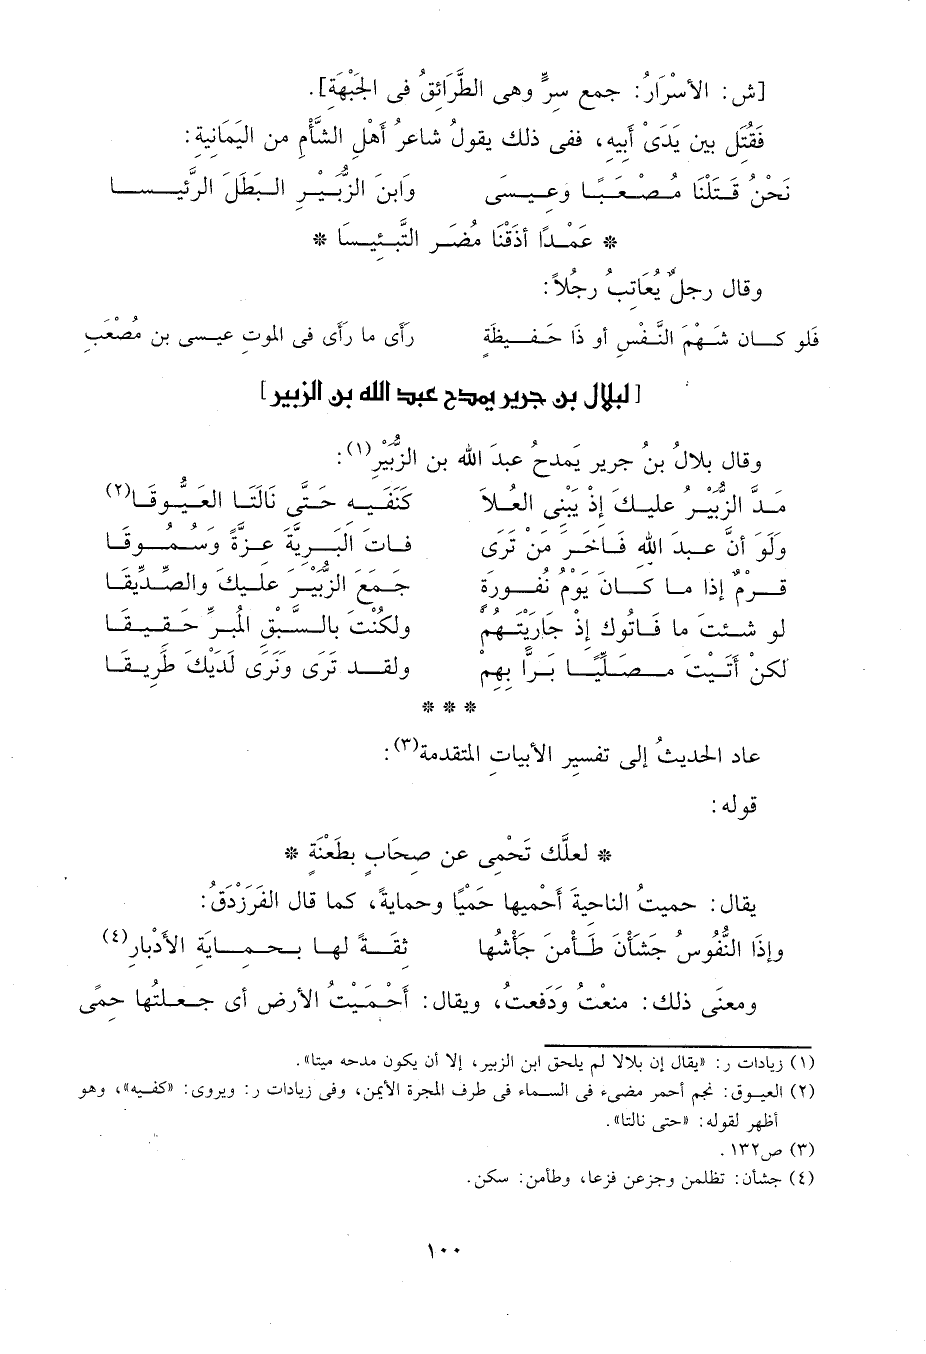 [ش: الأسْرَارُ: جمع سِرٍّ وهى الطَّرائقُ فى الجَبْهَةِ].
فَقُتِل بين يَدَىْ أبيهِ، ففى ذلك يقولُ شاعرُ أهْلِ الشَّأْمِ من اليَمَانية:
نَحْنُ قَتَلْنَا مُصْعَبًا وعِيسَى وَابنَ الزُّبَيْرِ البَطَلَ الرَّئيسا
* عَمْدًا أذَقْنَا مُضَر التَّبْئِيسَا *
وقال رجلٌ يُعَاتِبُ رجُلاً:
فَلو كان شَهْمَ النَّفْسِ أو ذَا حَفيظَةٍ رَأَى ما رَأَى فى الموتِ عيسى بن مُصْعَبِ
[لبلال بن جرير يمدح عبد الله بن الزبير]
وقال بلالُ بنُ جرير يَمدحُ عبدَ الله بن الزُّبَيْرِ(١):
مَدَّ الزُّبَيْرُ عليكَ إذْ يَبْنِى العُلاَ كَنَفَيهِ حَتَّى نَالَتَا العَيُّوقَا(٢)
ولَوَ أنَّ عبدَ الله فَاخَرَ مَنْ تَرَى فاتَ البَرِيَّةَ عِزَّةً وسُمُوقَا
قَرْمٌ إذا ما كانَ يَوْمُ نُفُورَةٍ جَمَعَ الزُّبَيْرَ عليكَ والصِّدِّيقَا
لو شئتَ ما فَاتُوكَ إذْ جَارَيْتَهُمْ ولكُنْتَ بالسَّبْقِ المُبِرِّ حَقيقَا
لكنْ أتَيْتَ مصَلِّيًا بَرًّا بِهِمْ ولقد تَرَى وَنَرَى لَدَيْكَ طَرِيقَا
* * *
عاد الحديثُ إلى تفسيرِ الأبياتِ المتقدمة(٣):
قوله:
* لعلَّك تَحْمِى عن صِحَابٍ بطَعْنَةٍ *
يقال: حميتُ الناحيةَ أحْمِيها حَمْيًا وحمايةً، كما قال الفَرَزْدَقُ:
وإذَا النُّفُوسُ جَشَأْنَ طَأْمنَ جَأْشَها ثقَةً لها بحمايَةِ الأَدْبارِ(٤)
ومعنَى ذلك: منعْتُ وَدَفعتُ، ويقال: أَحْمَيْتُ الأرض أى جعلتُها حِمًى
(١) زيادات ر: «يقال إن بلالا لم يلحق ابن الزبير، إلا أن يكون مدحه ميتا».
(٢) العيوق: نجم أحمر مضىء فى السماء فى طرف المجرة الأيمن، وفى زيادات ر: ويروى: «كفيه»، وهو
أظهر لقوله: «حتى نالتا».
(٣) ص١٣٢.
(٤) جشأن: تظلمن وجزعن فزعا، وطأمن: سكن.
١٠٠